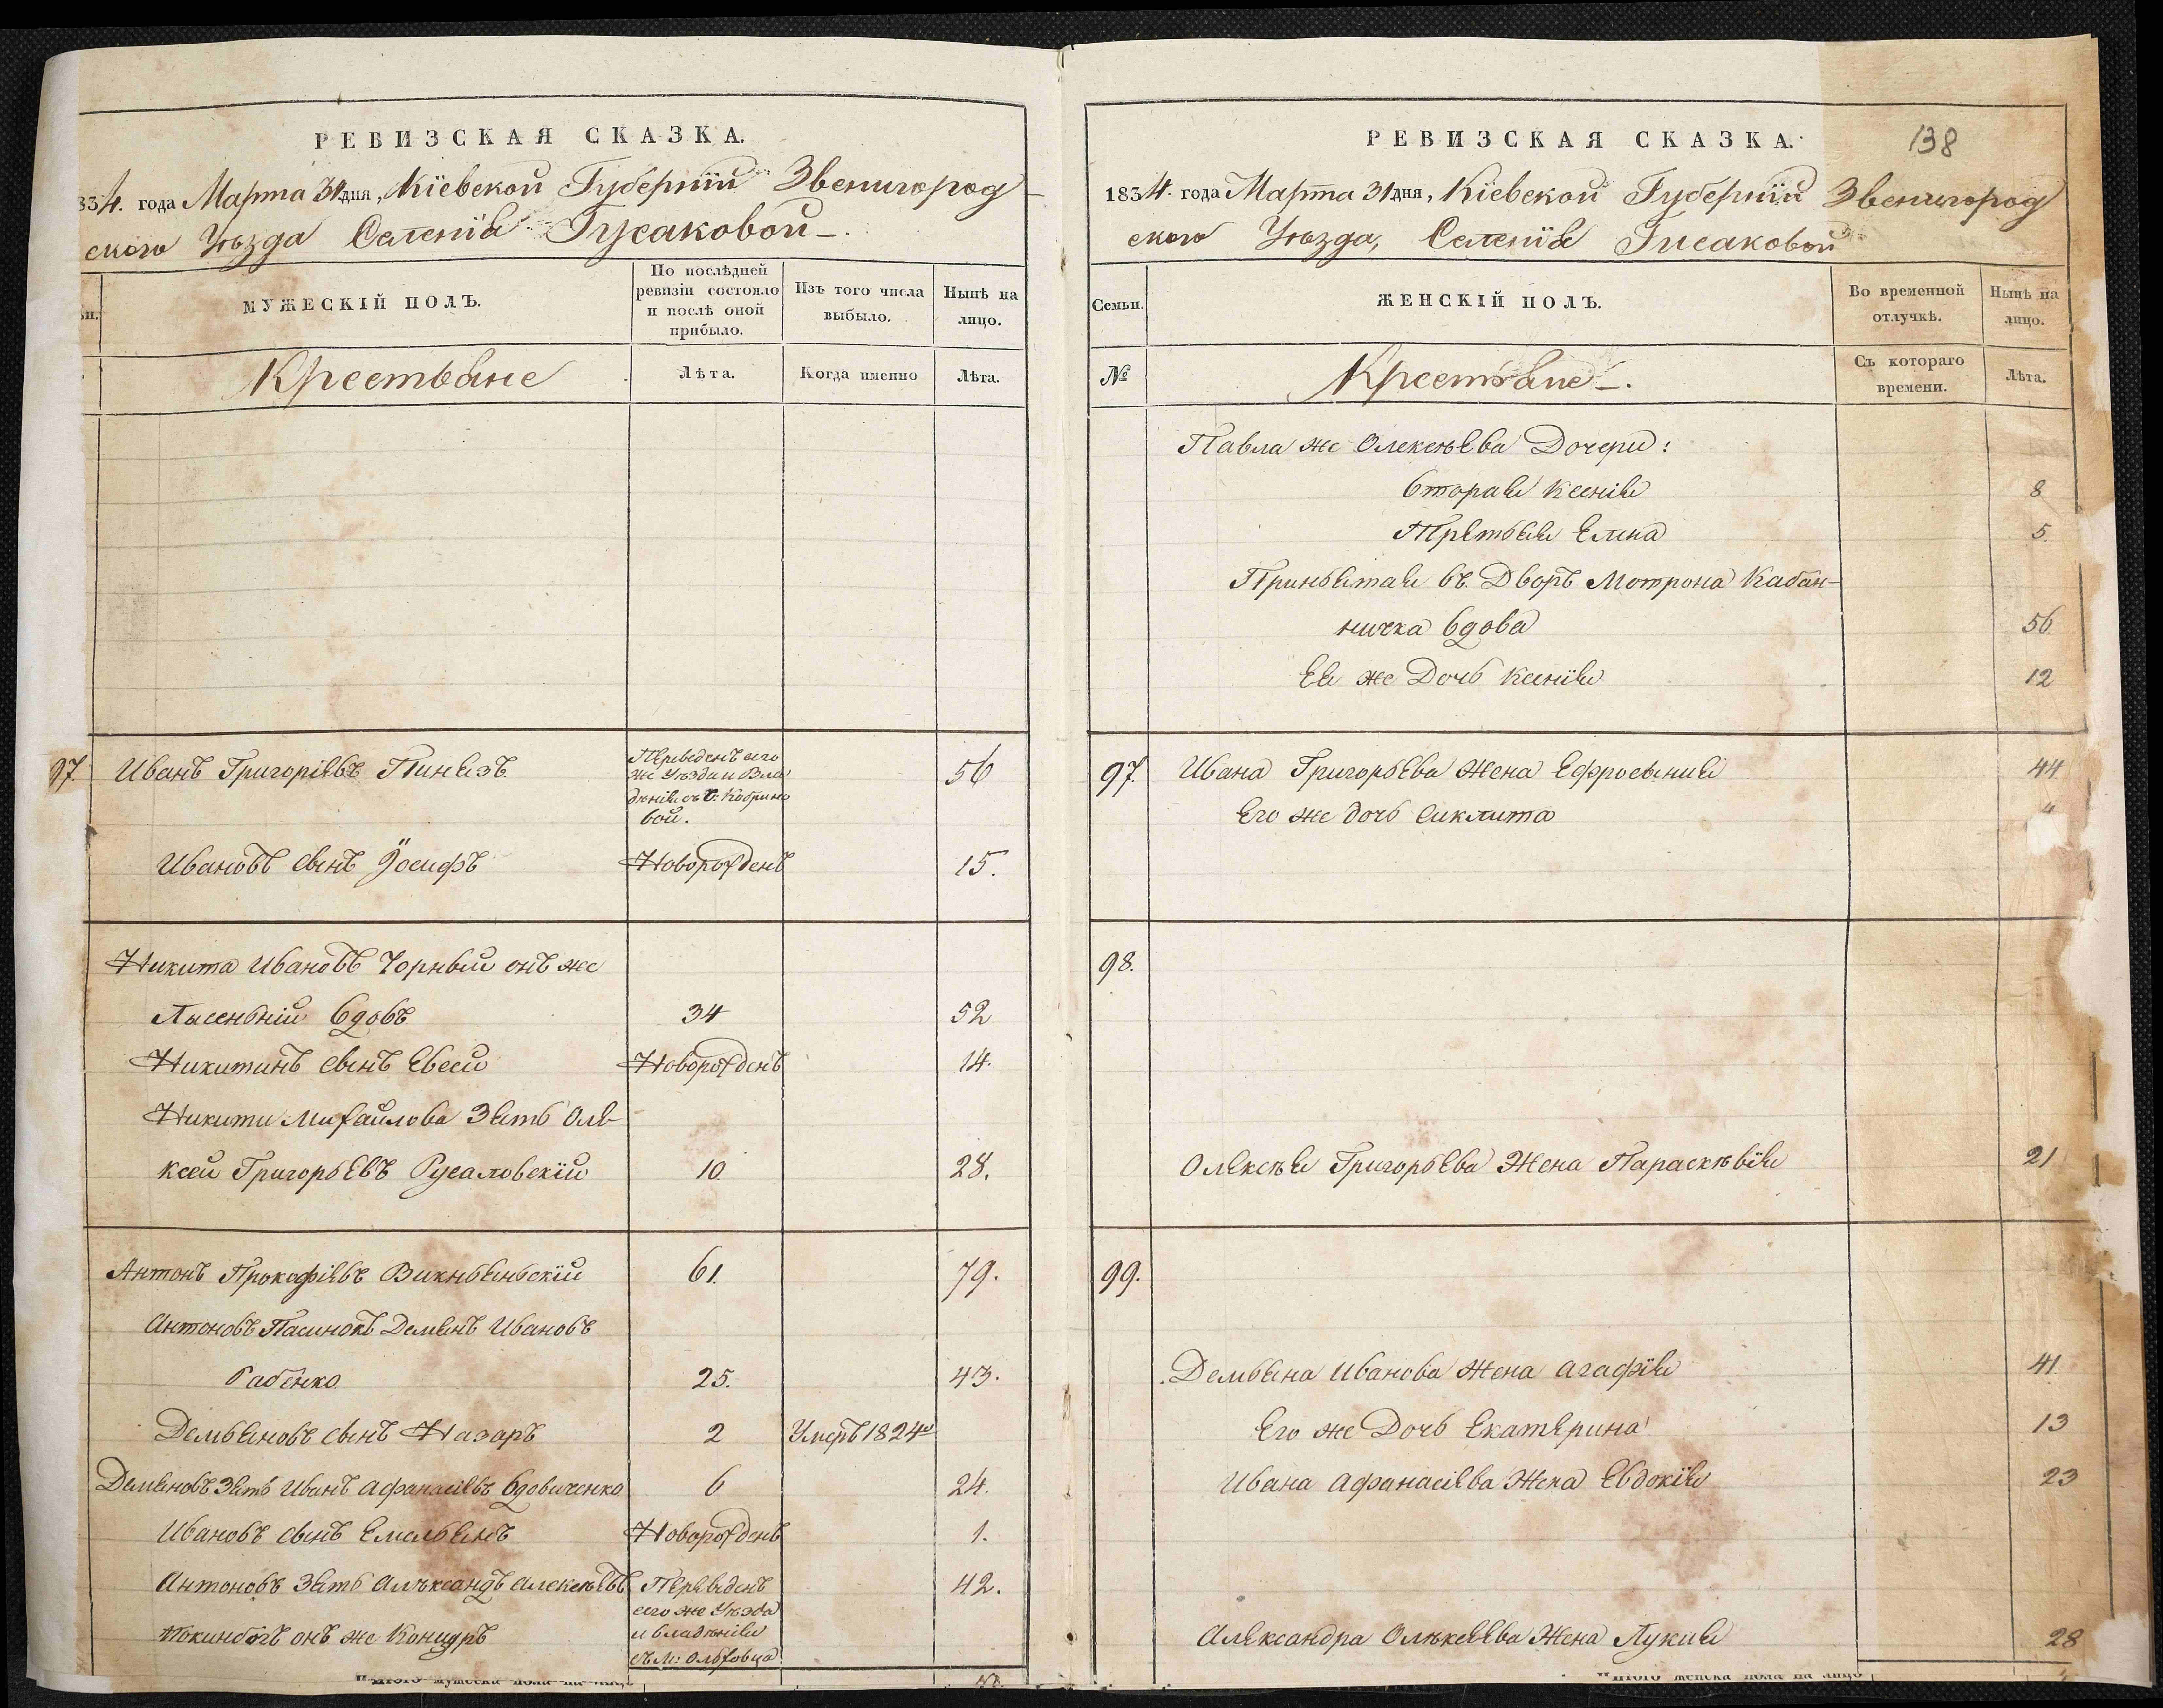 РЕВИЗСКАЯ СКАЗКА.
834. года Марта 31 дня, Кіевской Губерніи Звенигород
ского Уѣзда Селенія Гусаковой
МУЖЕСКІЙ ПОЛЪ.
По послѣдней ревизіи состояло и послѣ оной прибыло.
Изъ того числа выбыло.
Нынѣ на лицо.
Крестьяне
Лѣта.
Когда именно
Лѣта.
97 Иванъ Григоріевъ Пинязъ
Переведенъ сего
же Уѣзда и Вла
дѣнія съ С: Кобрино
вой.
56
Ивановъ сынъ Іосифъ Новорожденъ 15.
Никита Ивановъ Чорный онъ же
Лысенькій вдовъ 34 52
Никитинъ сынъ Евсей Новорожденъ 14.
Никити Михайлова Зять Оле-
ксей Григорьевъ Русаловскій 10. 28.
Антонъ Прокофіевъ Викняньскій 61. 79.
Антоновъ Пасинокъ Демянъ Ивановъ
Рабенко 25. 43.
Демьяновъ сынъ Назаръ 2 Умеръ 1824
Демяновъ Зять Иванъ Афанасіевъ Вдовиченко 6 24.
Ивановъ сынъ Емельянъ Новорожденъ 1.
Антоновъ Зять Алѣксандъ Алексѣевъ Переведенъ 42.
сего же Уѣзда
онъ же и владѣнія
съ М: Ольховца
Итого мужеска пола на лицо
РЕВИЗСКАЯ СКАЗКА.
138
1834. года Марта 31 дня, Кіевской Губерніи Звенигород
ского Уѣзда, Селенія Гусаковой
Семьи.
ЖЕНСКІЙ ПОЛЪ.
Во временной отлучкѣ.
Нынѣ на лицо.
№
Крестьяне.
Съ котораго времени.
Лѣта.
Павла же Олексѣева Дочери:
вторая Ксенія 8
Третья Елена 5.
Принятая въ Дворъ Мотрона Кабан-
ничка вдова 56.
Ея же Дочь Ксенія 12
97. Ивана Григорьева Жена Ефросинія 44
Его же дочь Сиклита
98.
Олексѣя Григорьева Жена Параскѣвія 21
99.
Демьяна Иванова Жена Агафія 41.
Его же Дочь Екатерина 13
Ивана Афанасіева Жена Евдокія 23
Александра Олѣксеева Жена Лукия 28
Итого женска пола на лицо